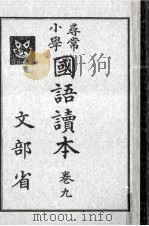 尋常
小學
國語讀本 卷九
文部省
www.toutiaow.com